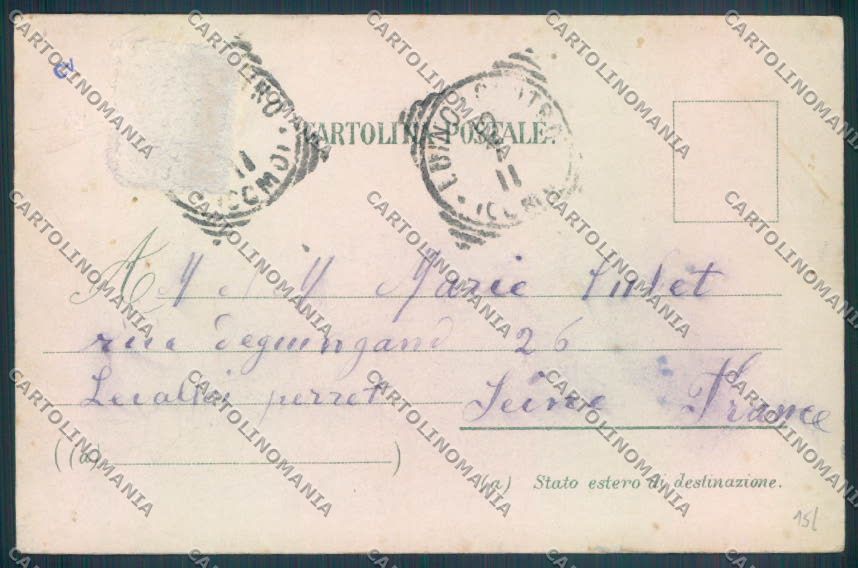 CARTOLINA POSTALE.
LUINO
(COMO)
11
A M M Marie
rue deguingand 26
Levallois perret Seine France
((a) )
(a) Stato estero di destinazione.
15/
CARTOLINOMANIA